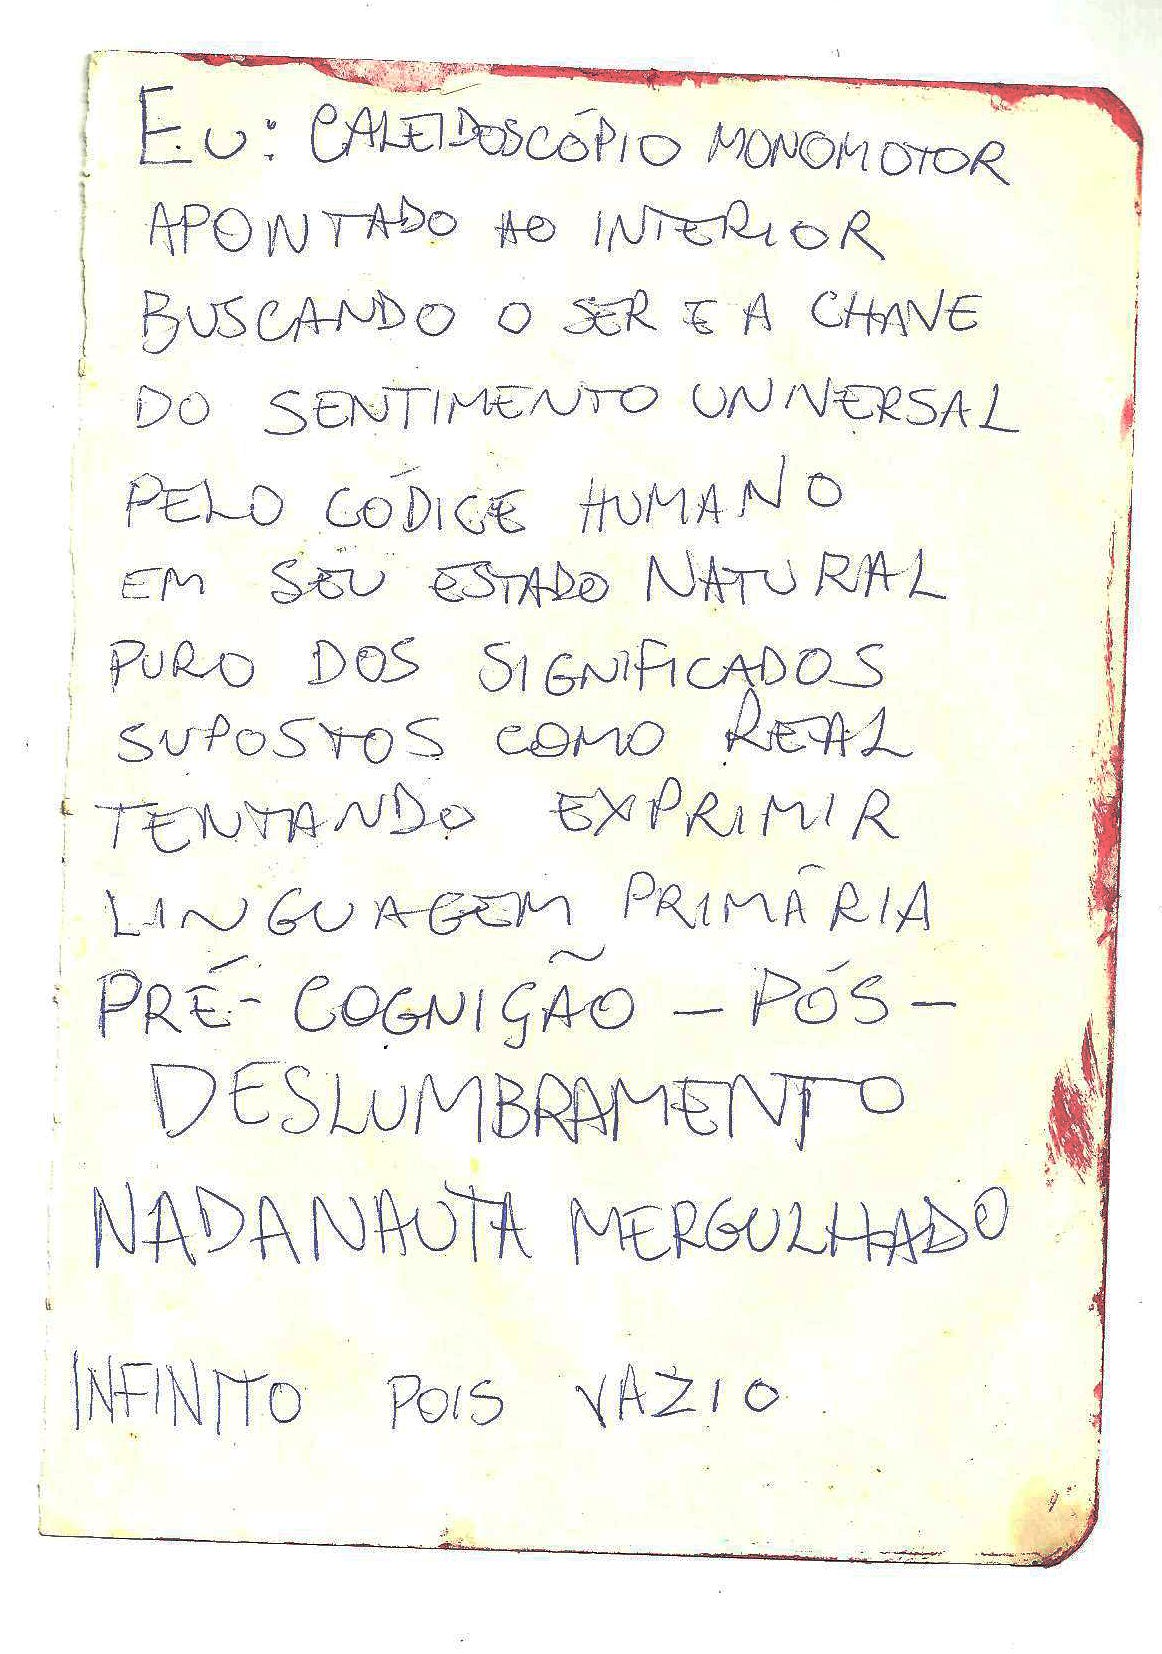 EU: CALEIDOSCÓPIO MONOMOTOR
APONTADO AO INTERIOR
BUSCANDO O SER E A CHAVE
DO SENTIMENTO UNIVERSAL
PELO CÓDICE HUMANO
EM SEU ESTADO NATURAL
PURO DOS SIGNIFICADOS
SUPOSTOS COMO REAL
TENTANDO EXPRIMIR
LINGUAGEM PRIMÁRIA
PRÉ-COGNIÇÃO - PÓS-
DESLUMBRAMENTO
NADANAUTA MERGULHADO
INFINITO POIS VAZIO